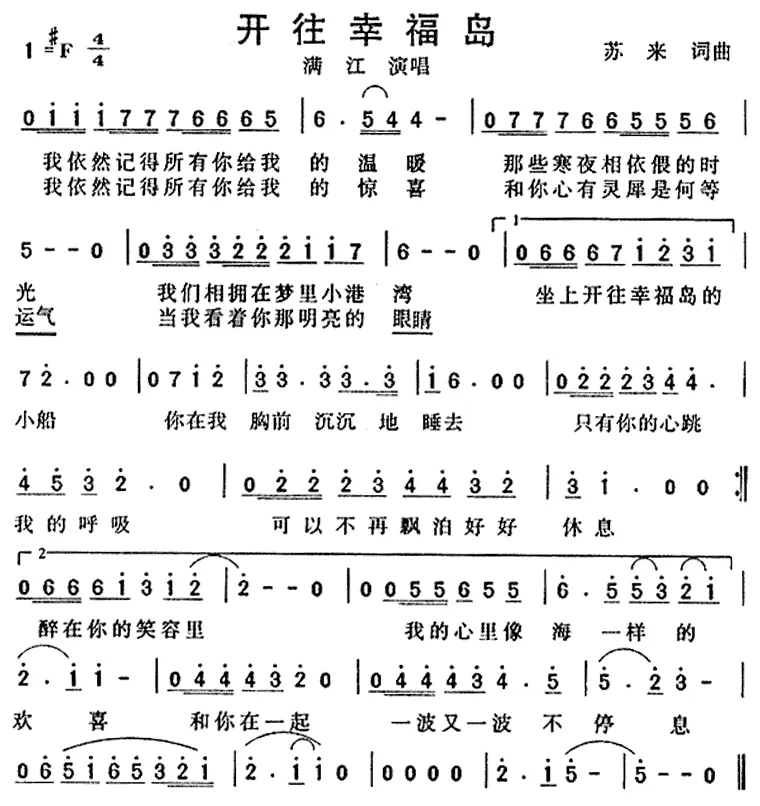 开往幸福岛
1=#F 4/4
苏来 词曲
满江 演唱
0 i i i 7 7 7 6 6 6 5 | 6 · 5 4 4 - | 0 7 7 7 6 6 5 5 5 6 |
我依然记得所有你给我 的 温 暖 那些寒夜相依偎的时
我依然记得所有你给我 的 惊 喜 和你心有灵犀是何等
5 - - 0 | 0 3 3 3 2 2 2 i i 7 | 6 - - 0 | 1 0 6 6 6 7 i 2 3 i |
光 我们相拥在梦里小港 湾 坐上开往幸福岛的
运气 当我看着你那明亮的 眼睛
7 2 · 0 0 | 0 7 i 2 | 3 3 · 3 3 · 3 | i 6 · 0 0 | 0 2 2 2 2 3 4 4 · |
小船 你在我 胸前 沉沉 地 睡去 只有你的心跳
4 5 3 2 · 0 | 0 2 2 2 3 4 4 3 2 | 3 i · 0 0 :||
我的呼吸 可以不再飘泊好好 休息
2 0 6 6 6 i 3 i 2 | 2 - - 0 | 0 0 5 5 6 5 5 | 6 · 5 5 3 2 i |
醉在你的笑容里 我的心里像 海 一样 的
2 · i i - | 0 4 4 4 3 2 0 | 0 4 4 4 3 4 · 5 | 5 · 2 3 - |
欢 喜 和你在一起 一波又一波 不 停 息
0 6 5 i 6 5 3 2 i | 2 · i i 0 | 0 0 0 0 | 2 · i 5 - | 5 - - 0 ||